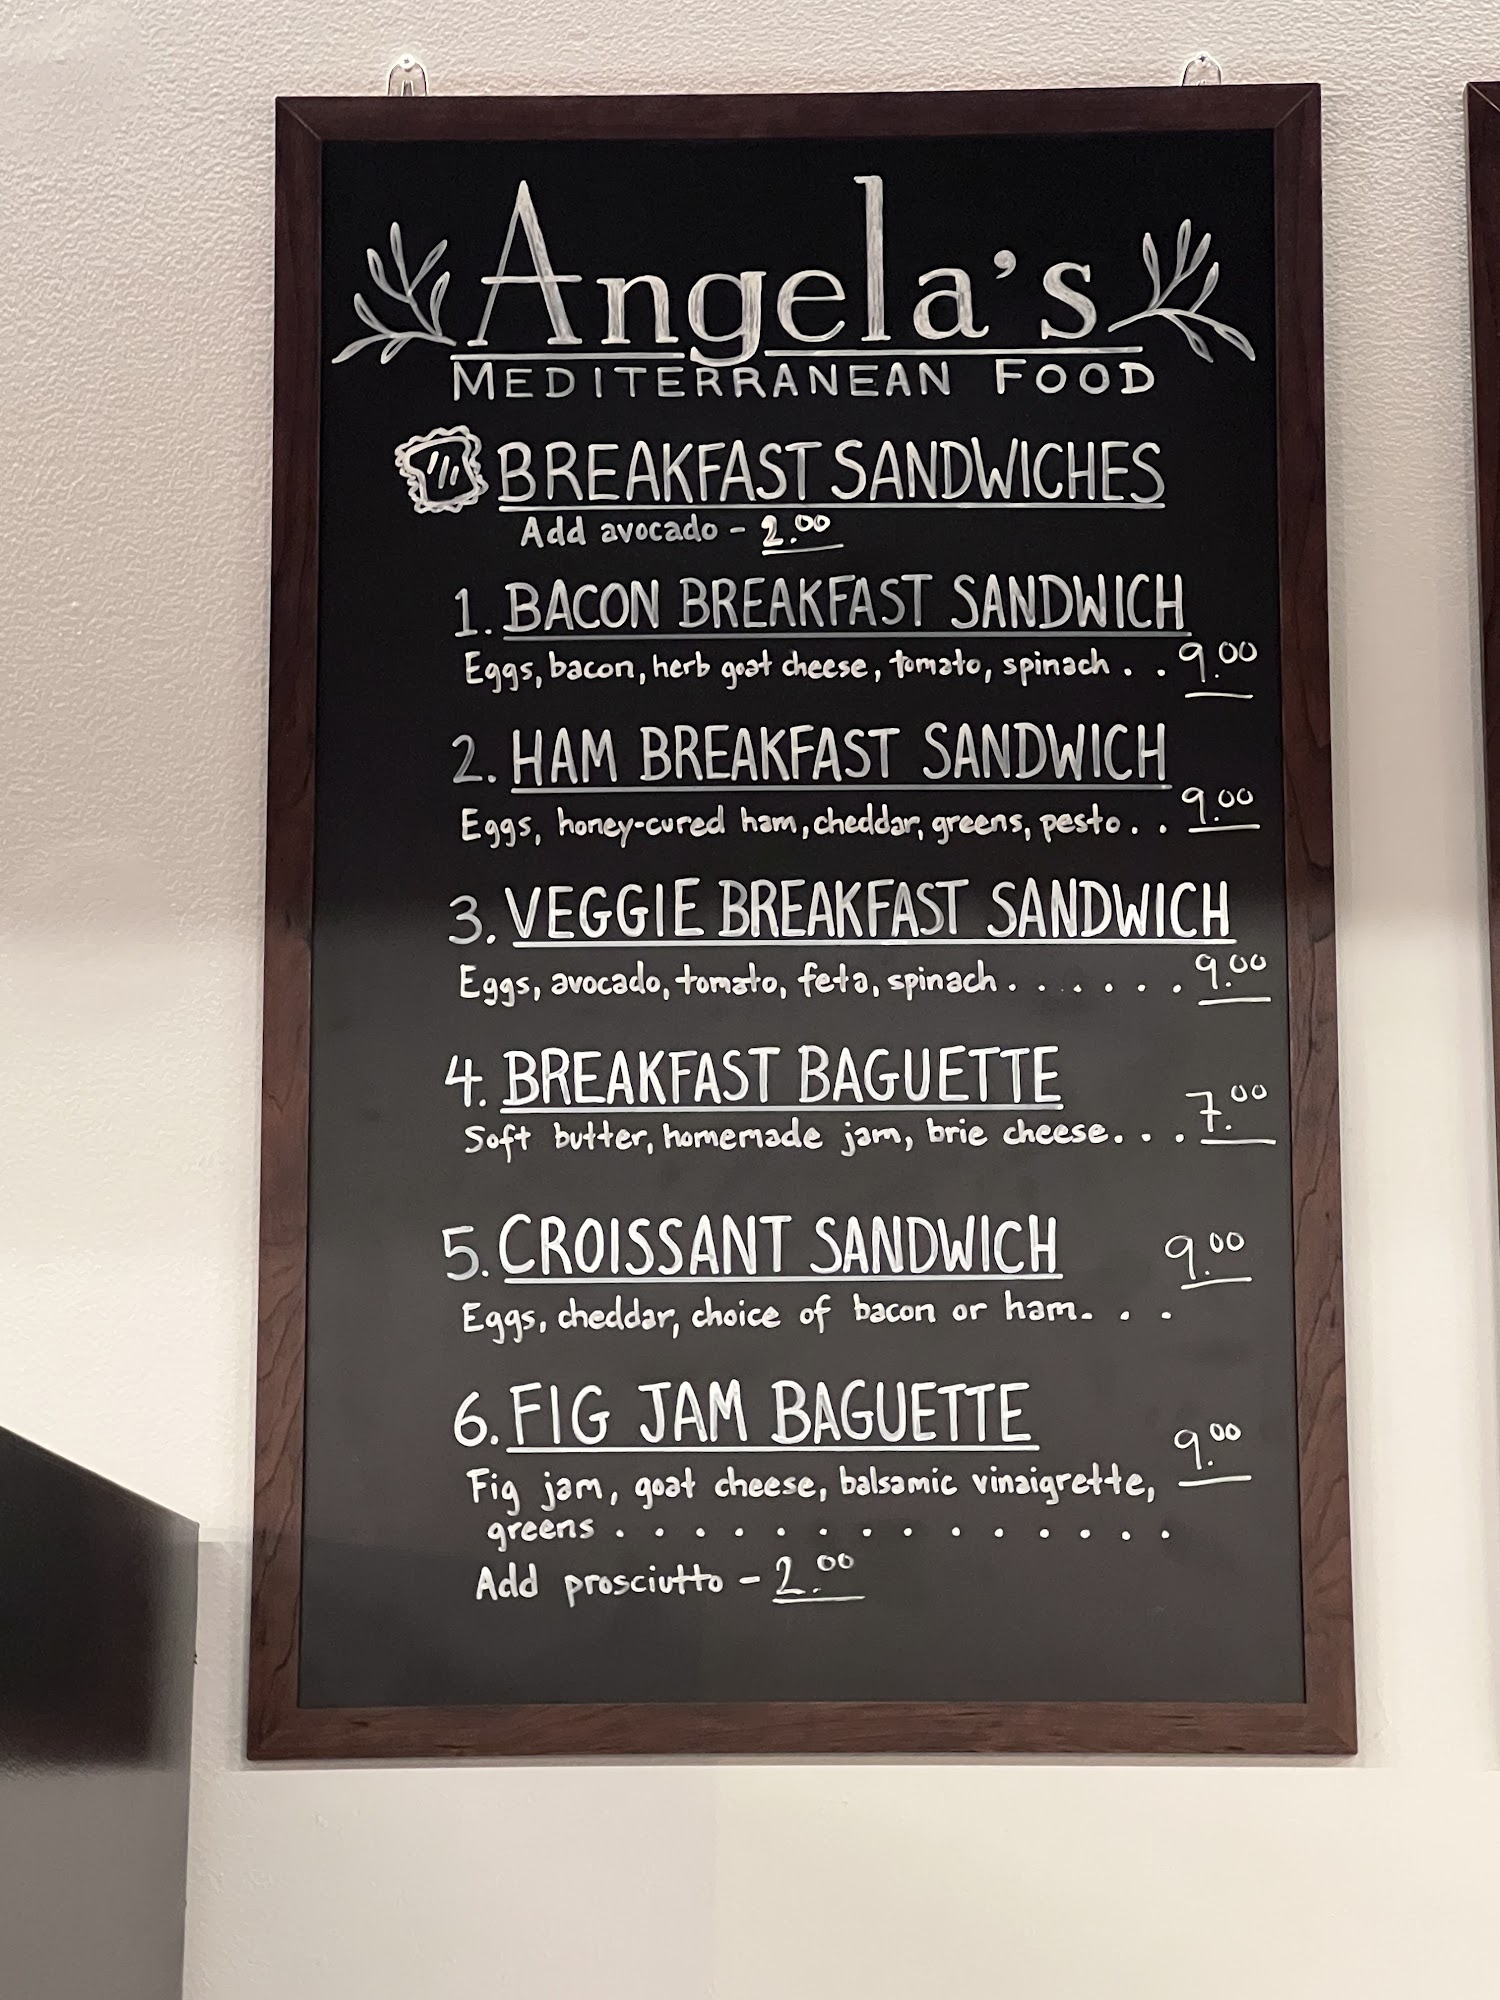 Angela's
MEDITERRANEAN FOOD
BREAKFAST SANDWICHES
Add avocado - 2.00
1. BACON BREAKFAST SANDWICH
Eggs, bacon, herb goat cheese, tomato, spinach . . 9.00
2. HAM BREAKFAST SANDWICH
Eggs, honey-cured ham, cheddar, greens, pesto . . 9.00
3. VEGGIE BREAKFAST SANDWICH
Eggs, avocado, tomato, feta, spinach . . . . . . . 9.00
4. BREAKFAST BAGUETTE
Soft butter, homemade jam, brie cheese. . . . 7.00
5. CROISSANT SANDWICH 9.00
Eggs, cheddar, choice of bacon or ham. . .
6. FIG JAM BAGUETTE 9.00
Fig jam, goat cheese, balsamic vinaigrette,
greens . . . . . . . . . . . . . . .
Add prosciutto - 2.00